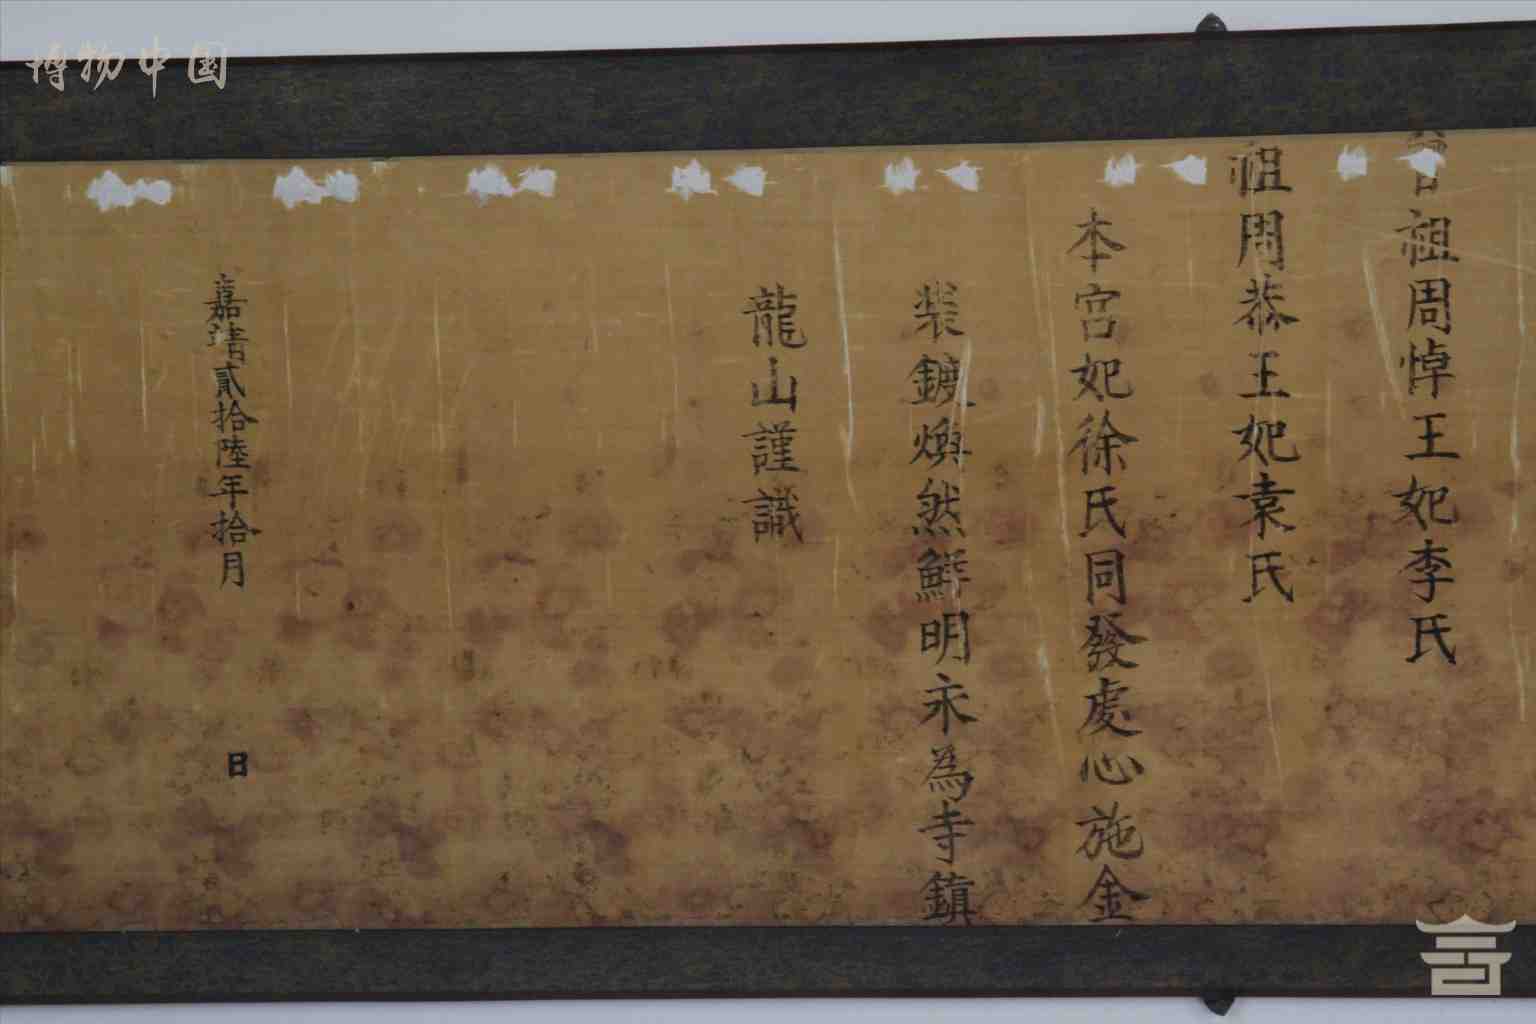 曾祖周悼王妃李氏
祖周恭王妃袁氏
本宮妃徐氏同發處心施金
裝鍍煥然鮮明永為寺鎮
龍山謹識
嘉靖貳拾陸年拾月 日
博物中国